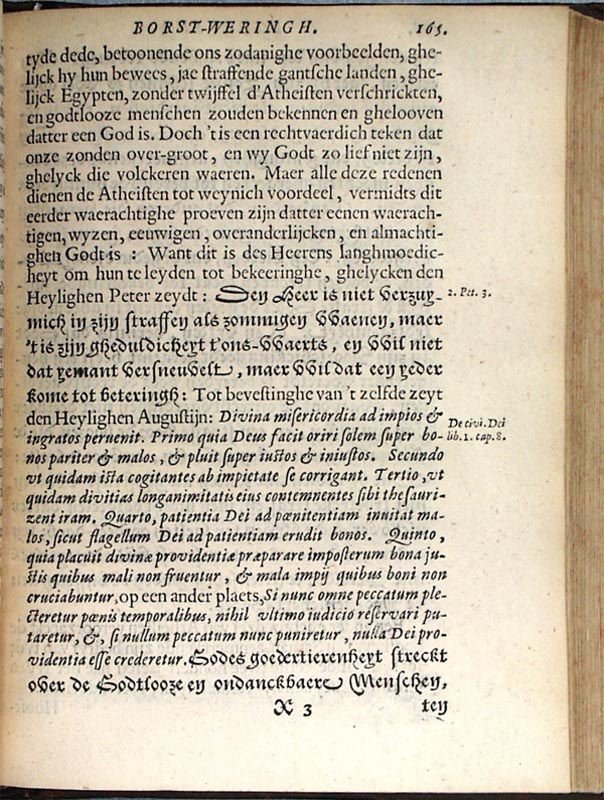 BORST-WERINGH. 165.
tyde dede, betoonende ons zodanighe voorbeelden, ghe-
lijck hy hun bewees, jae straffende gantsche landen, ghe-
lijck Egypten, zonder twijffel d'Atheisten verschrickten,
en godtlooze menschen zouden bekennen en ghelooven
datter een God is. Doch 't is een rechtvaerdich teken dat
onze zonden over-groot, en wy Godt zo lief niet zijn,
ghelyck die volckeren waeren. Maer alle deze redenen
dienen de Atheisten tot weynich voordeel, vermidts dit
eerder waerachtighe proeven zijn datter eenen waerach-
tigen, wyzen, eeuwigen, overanderlijcken, en almachti-
ghen Godt is : Want dit is des Heerens langhmoedic-
heyt om hun te leyden tot bekeeringhe, ghelycken den
Heylighen Peter zeydt : Den Heer is niet verzuy-
mich in zijn straffen als zommigen VVaenen, maer
't is zijn gheduldicheyt t'ons-VVaerts, en VVil niet
dat yemant versneuvelt, maer VVil dat een yeder
kome tot beteringh: Tot bevestinghe van 't zelfde zeyt
den Heylighen Augustijn: Divina misericordia ad impios &
ingratos peruenit. Primo quia Deus facit oriri solem super bo-
nos pariter & malos, & pluit super iustos & iniustos. Secundo
vt quidam ista cogitantes ab impietate se corrigant. Tertio, vt
quidam divitias longanimitatis eius contemnentes sibi thesauri-
zent iram. Quarto, patientia Dei ad pœnitentiam inuitat ma-
los, sicut flagellum Dei ad patientiam erudit bonos. Quinto,
quia placuit divinæ providentiæ præparare imposterum bona ju-
stis quibus mali non fruentur, & mala impij quibus boni non
cruciabuntur, op een ander plaets, Si nunc omne peccatum ple-
cteretur pœnis temporalibus, nihil vltimo iudicio reservari pu-
taretur, &, si nullum peccatum nunc puniretur, nulla Dei pro-
videntia esse crederetur. Godes goedertierenheyt streckt
over de Godtlooze en ondanckbaere Menschen,
X 3 ten
2. Pet. 3.
De civi. Dei
lib. 1. cap. 8.